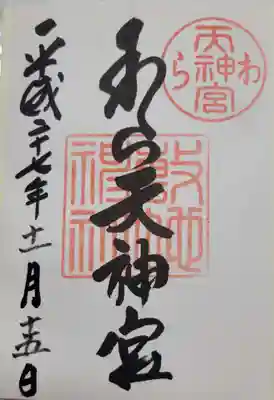 わら天神宮
わら天神宮
平成二十七年十一月十五日